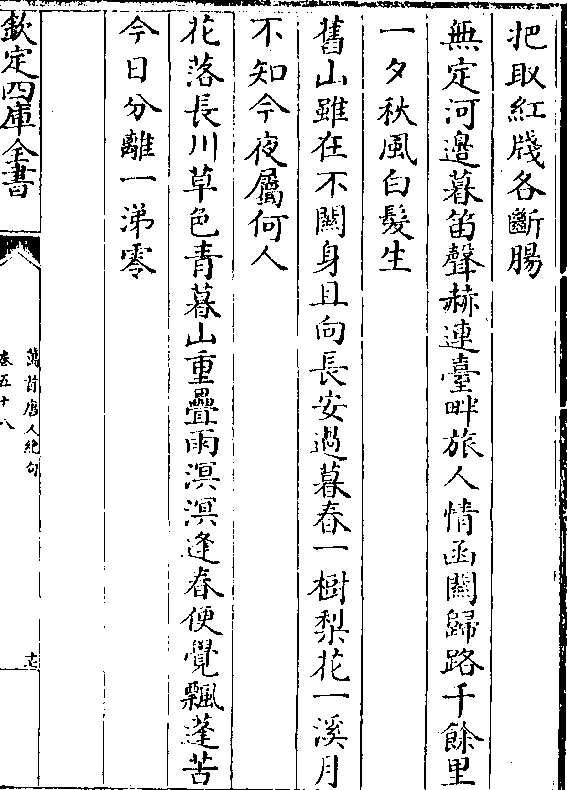 把取紅牋各斷腸
無定河邊暮笛聲赫連臺畔旅人情函關歸路千餘里
一夕秋風白髮生
舊山雖在不關身且向長安過暮春一樹梨花一溪月
不知今夜屬何人
花落長川草色青暮山重疊雨溟溟逢春便覺飄蓬苦
今日分離一涕零
欽定四庫全書
萬首唐人絶句
卷五十八
十二